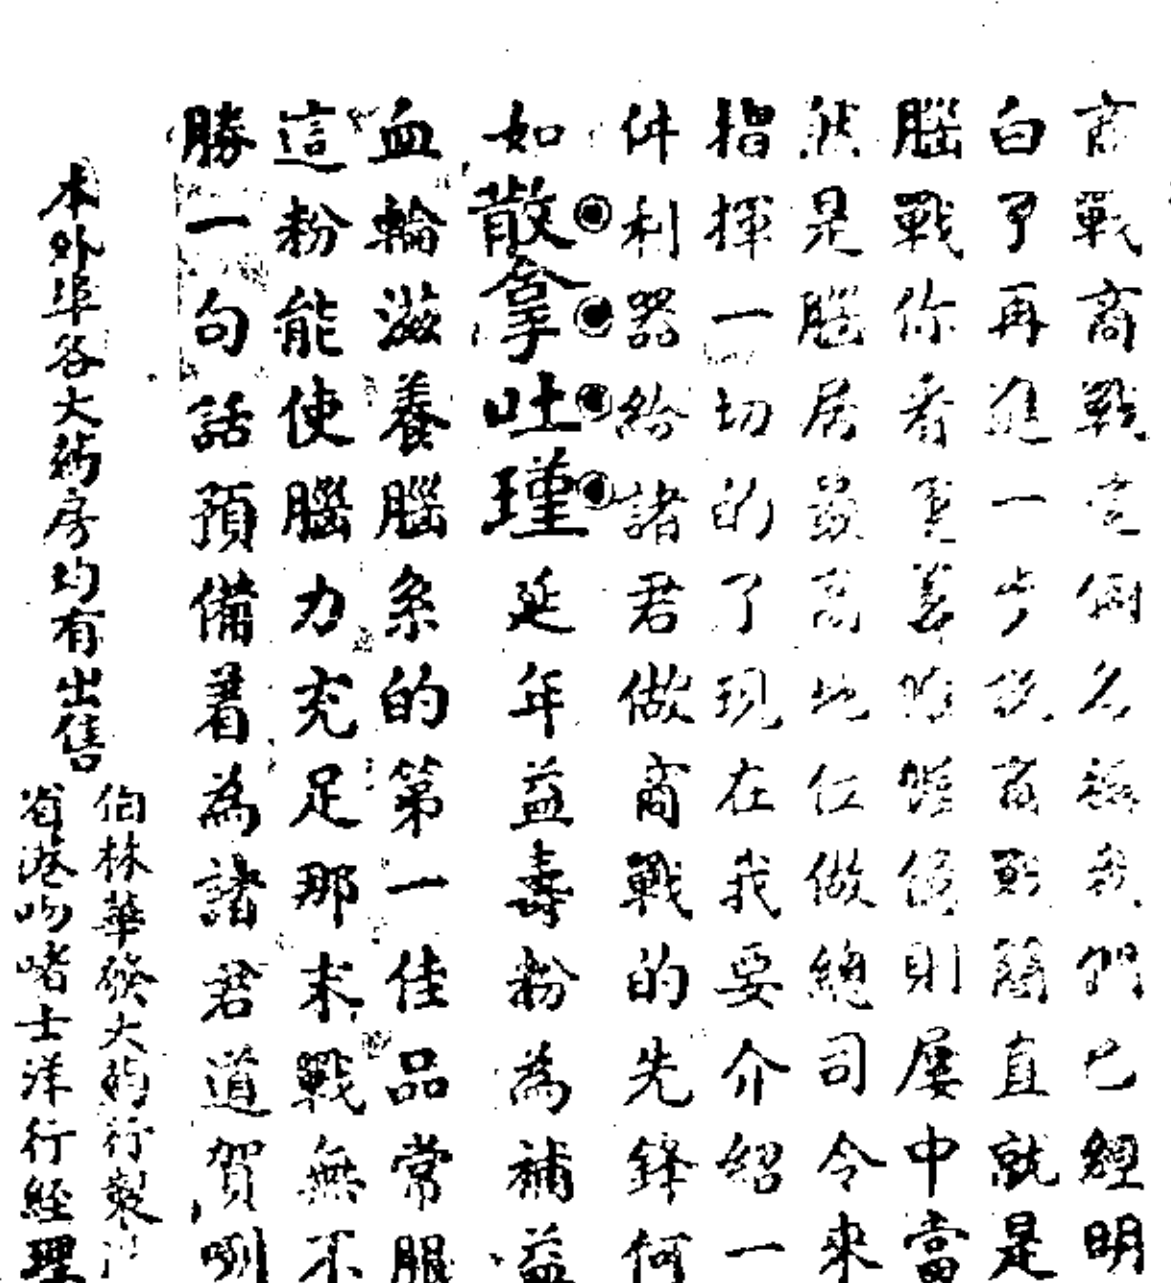 商戰商戰這個名稱我們已經明
白了再進一步說商戰簡直就是
腦戰你看買善賣時候則屢中當
然是腦居最高地位做總司令來
指揮一切的了現在我要介紹一
件利器給諸君做商戰的先鋒何
如散拿吐瑾延年益壽粉為補益
血輪滋養腦系的第一佳品常服
這粉能使腦力充足那末戰無不
勝一句話預備着為諸君道賀咧
本外埠各大藥房均有出售
伯林華發大藥行製
省港吻喏士洋行經理